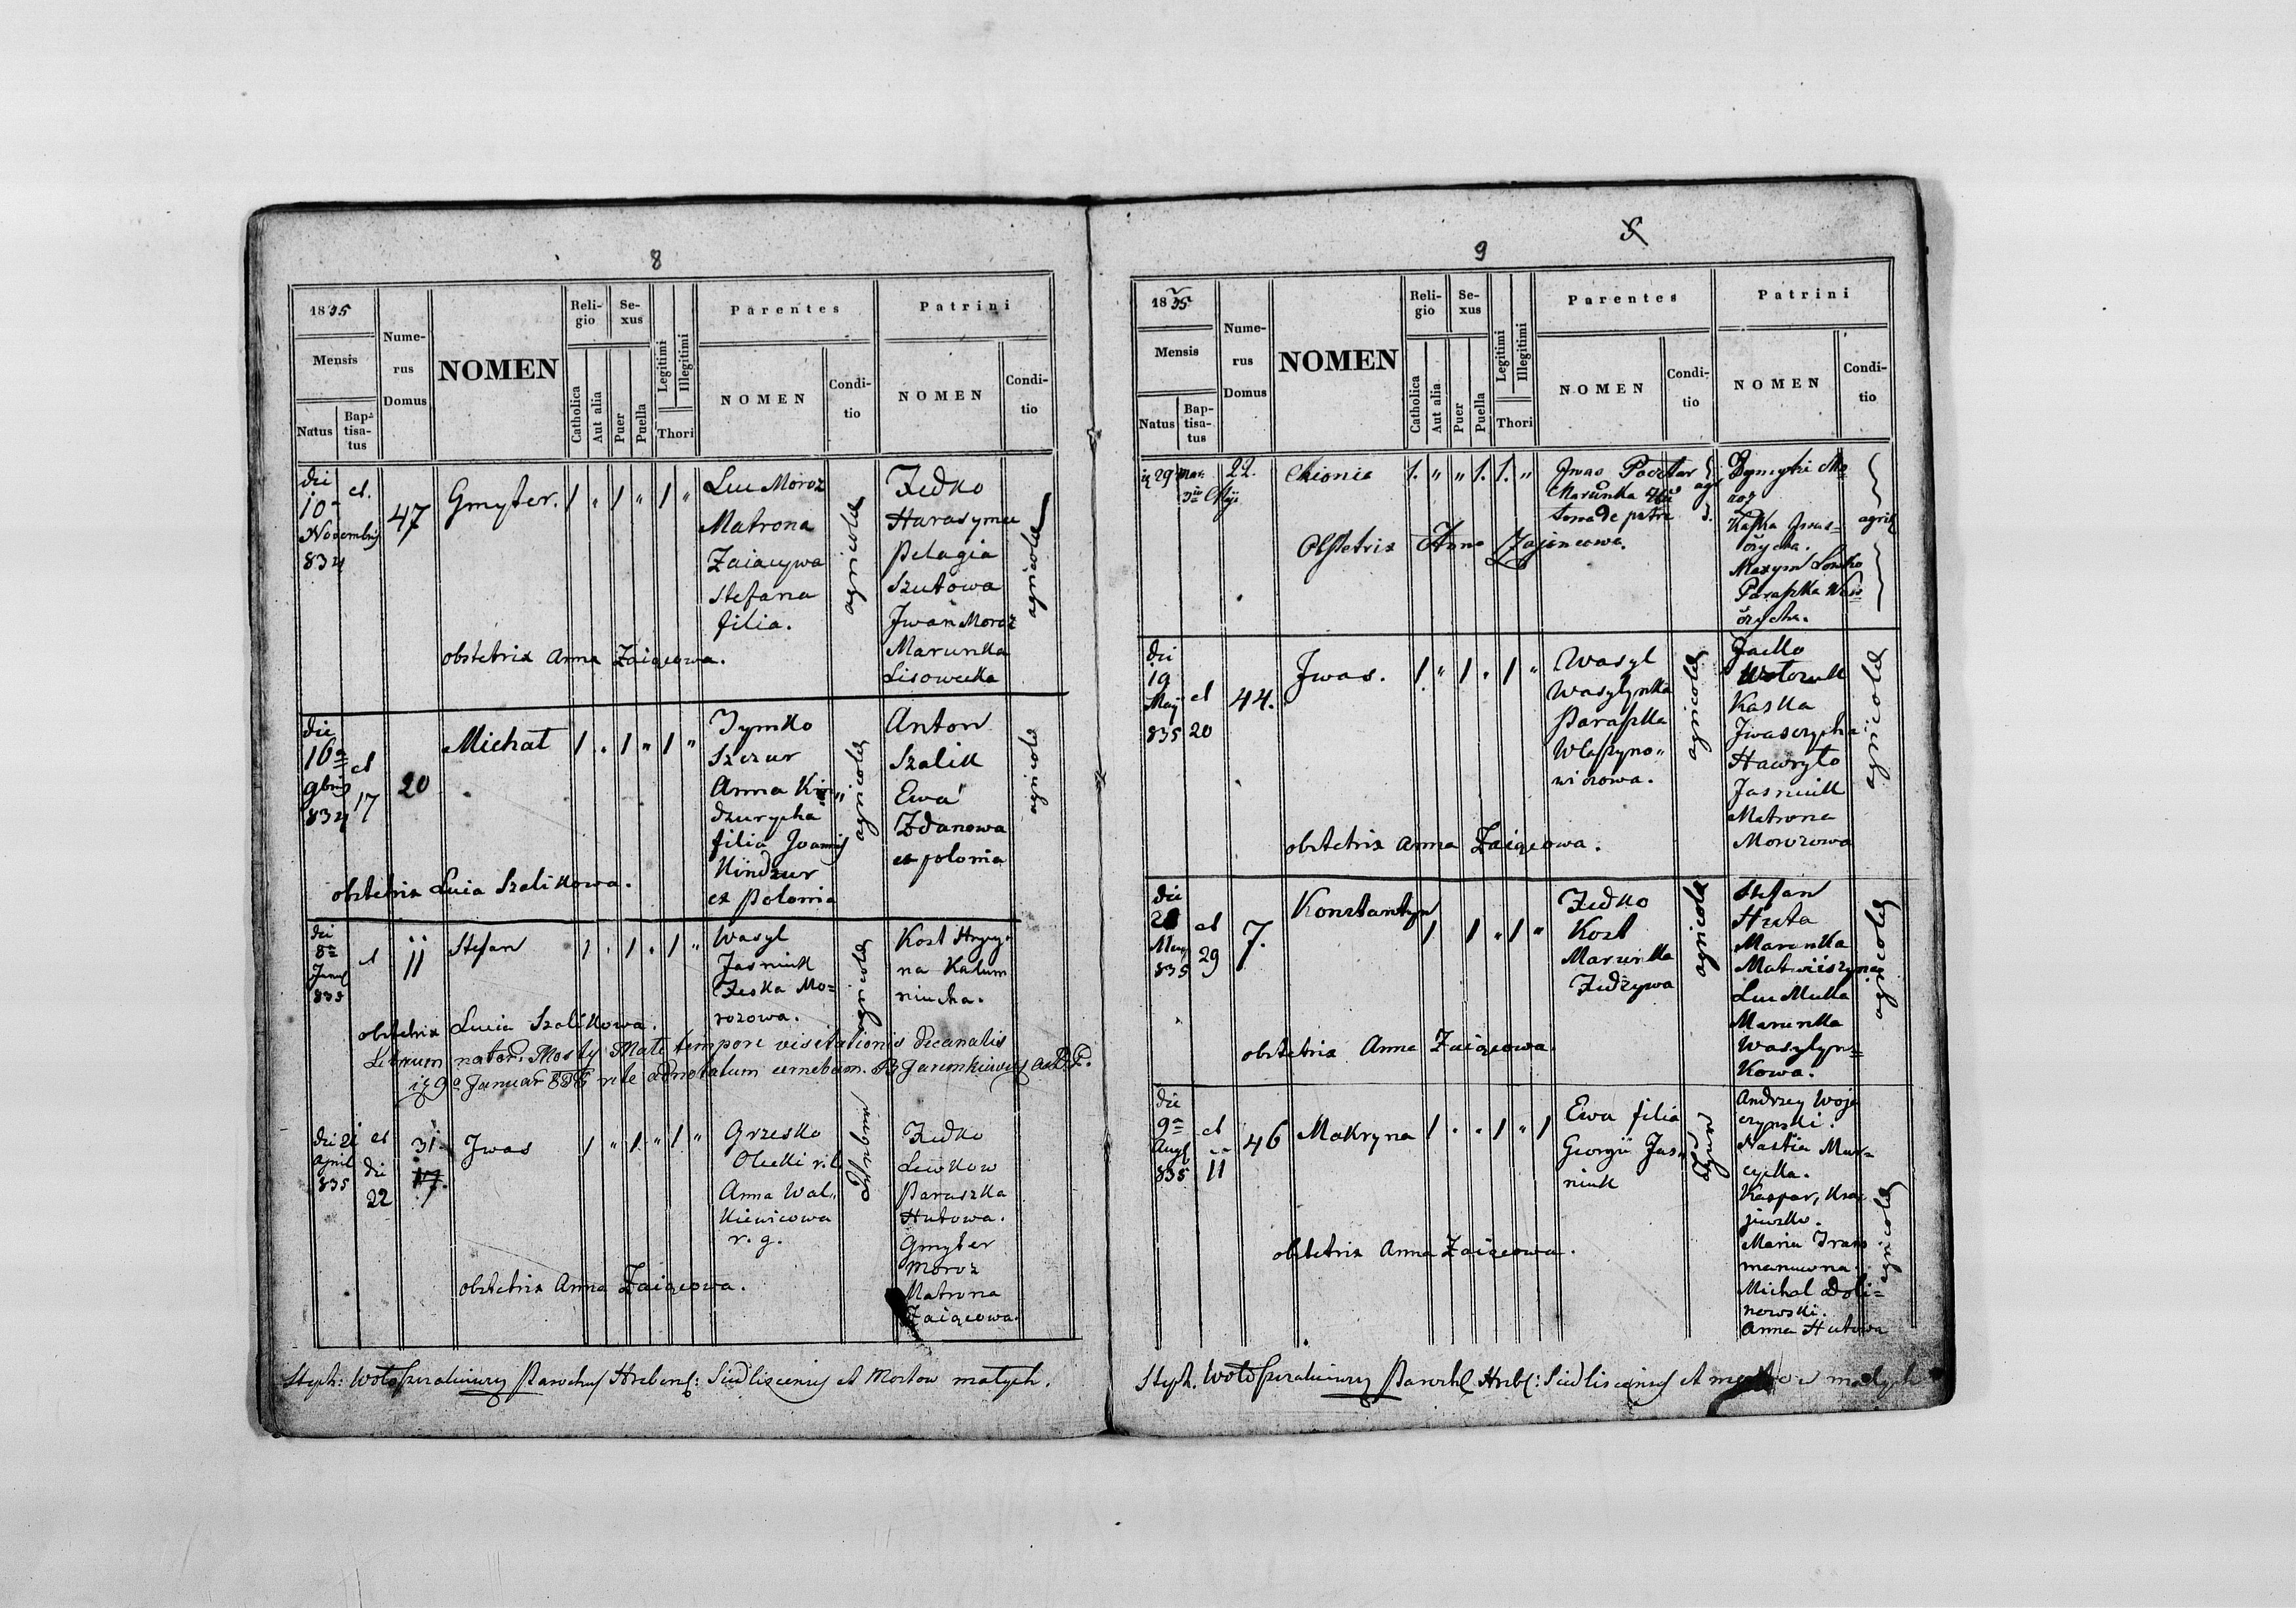 8
1835
Mensis
Natus
Bap-
tisa-
tus
Nume-
rus
Domus
NOMEN
Reli-
gio
Catholica
Aut alia
Se-
xus
Puer
Puella
Legitimi
Illegitimi
Thori
Parentes
NOMEN
Condi-
tio
Patrini
NOMEN
Condi-
tio
die
10
Novembris
834
et
47
Gmyter. 1 " 1 " 1 "
Luc Moroz
Matrona
Zaiacywa
Stefana
filia.
agricolae
Fedko
Harasymu
Pelagia
Szutowa
Jwan Moroz
Marunka
Lisowecka
agricolae
obstetrix Anna Zaiącowa.
die
16
9bris
834
et
17
20
Michał 1 " 1 " 1 "
Tymko
Szczur
Anna Kin"
dzurycha
filia Joannis
Kindzur
ex Polonia
agricolae
Anton
Szalik
Ewa
Zdanowa
ex polonia
agricolae
obstetrix Lucia Szalikowa.
die
8
835
et
11
Stefan 1 " 1 " 1 "
Wasyl
Jasniuk
Feska Mo=
rozowa.
agricolae
Kost Hryny
na Kalum
niucha.
obstetrix Lucia Szalikowa.
Librum nator. Mosty Małe tempore visitationis decanalis
die 21
April
835
et
die
22
31
17.
Jwas 1 " 1 " 1 "
Grzesko
Olecki r. l.
Anna Wal"
kiewicowa
r. g.
Fedko
Lewkow
Paraszka
Hutowa.
Gmyter
Moroz
Matrona
Zaiącowa.
obstetrix Anna Zaiącowa.
Steph: Wołoszczakiewicz Parochus Hreben: Siedliscensis et Mostow małych.
9
1835
Mensis
Natus
Bap-
tisa-
tus
Nume-
rus
Domus
NOMEN
Reli-
gio
Catholica
Aut alia
Se-
xus
Puer
Puella
Legitimi
Illegitimi
Thori
Parentes
NOMEN
Condi-
tio
Patrini
NOMEN
Condi-
tio
29 Mar.
22.
Chionia 1. " " 1. 1. "
Jwas
Marunka
de patre
Kaska Jwas=
czycha.
Paraszka
agric
Obstetrix Anna Zajoncowa.
die
19
May
835
et
20
44.
Jwas. 1 " 1 " 1 "
Wasyl
Wasylynka
Paraszka
Wlaszyno"
wiczowa.
agricolae
Jacko
Kaska
Jwasczycha
Hawryło
Jasniuk
Matrona
Morozowa
agricolae
obstetrix Anna Zaiącowa.
die
May
835
et
29
7.
Konstantyn 1 1 " 1 "
Fedko
Kost
Marunka
Fedżywa
agricolae
Stefan
Huta
Marunka
Matwiiszyna
Luc Mucka
Marunka
Wasylyn=
kowa.
agricolae
obstetrix Anna Zaiącowa.
die
9
Aug
835
et
11
46
Makryna 1 " " 1 " 1
Ewa filia
Georgii Jas"
niuk
Andrzey Woje
czynski.
Nastia Mar=
cycka.
Kaspar
Maria
Michał Doli=
nowski.
Anna Hutowa
agricolae
obstetrix Anna Zaiącowa.
Steph. Wołoszczakiewicz Paroch Hreb: Siedliscensis et mostow małych